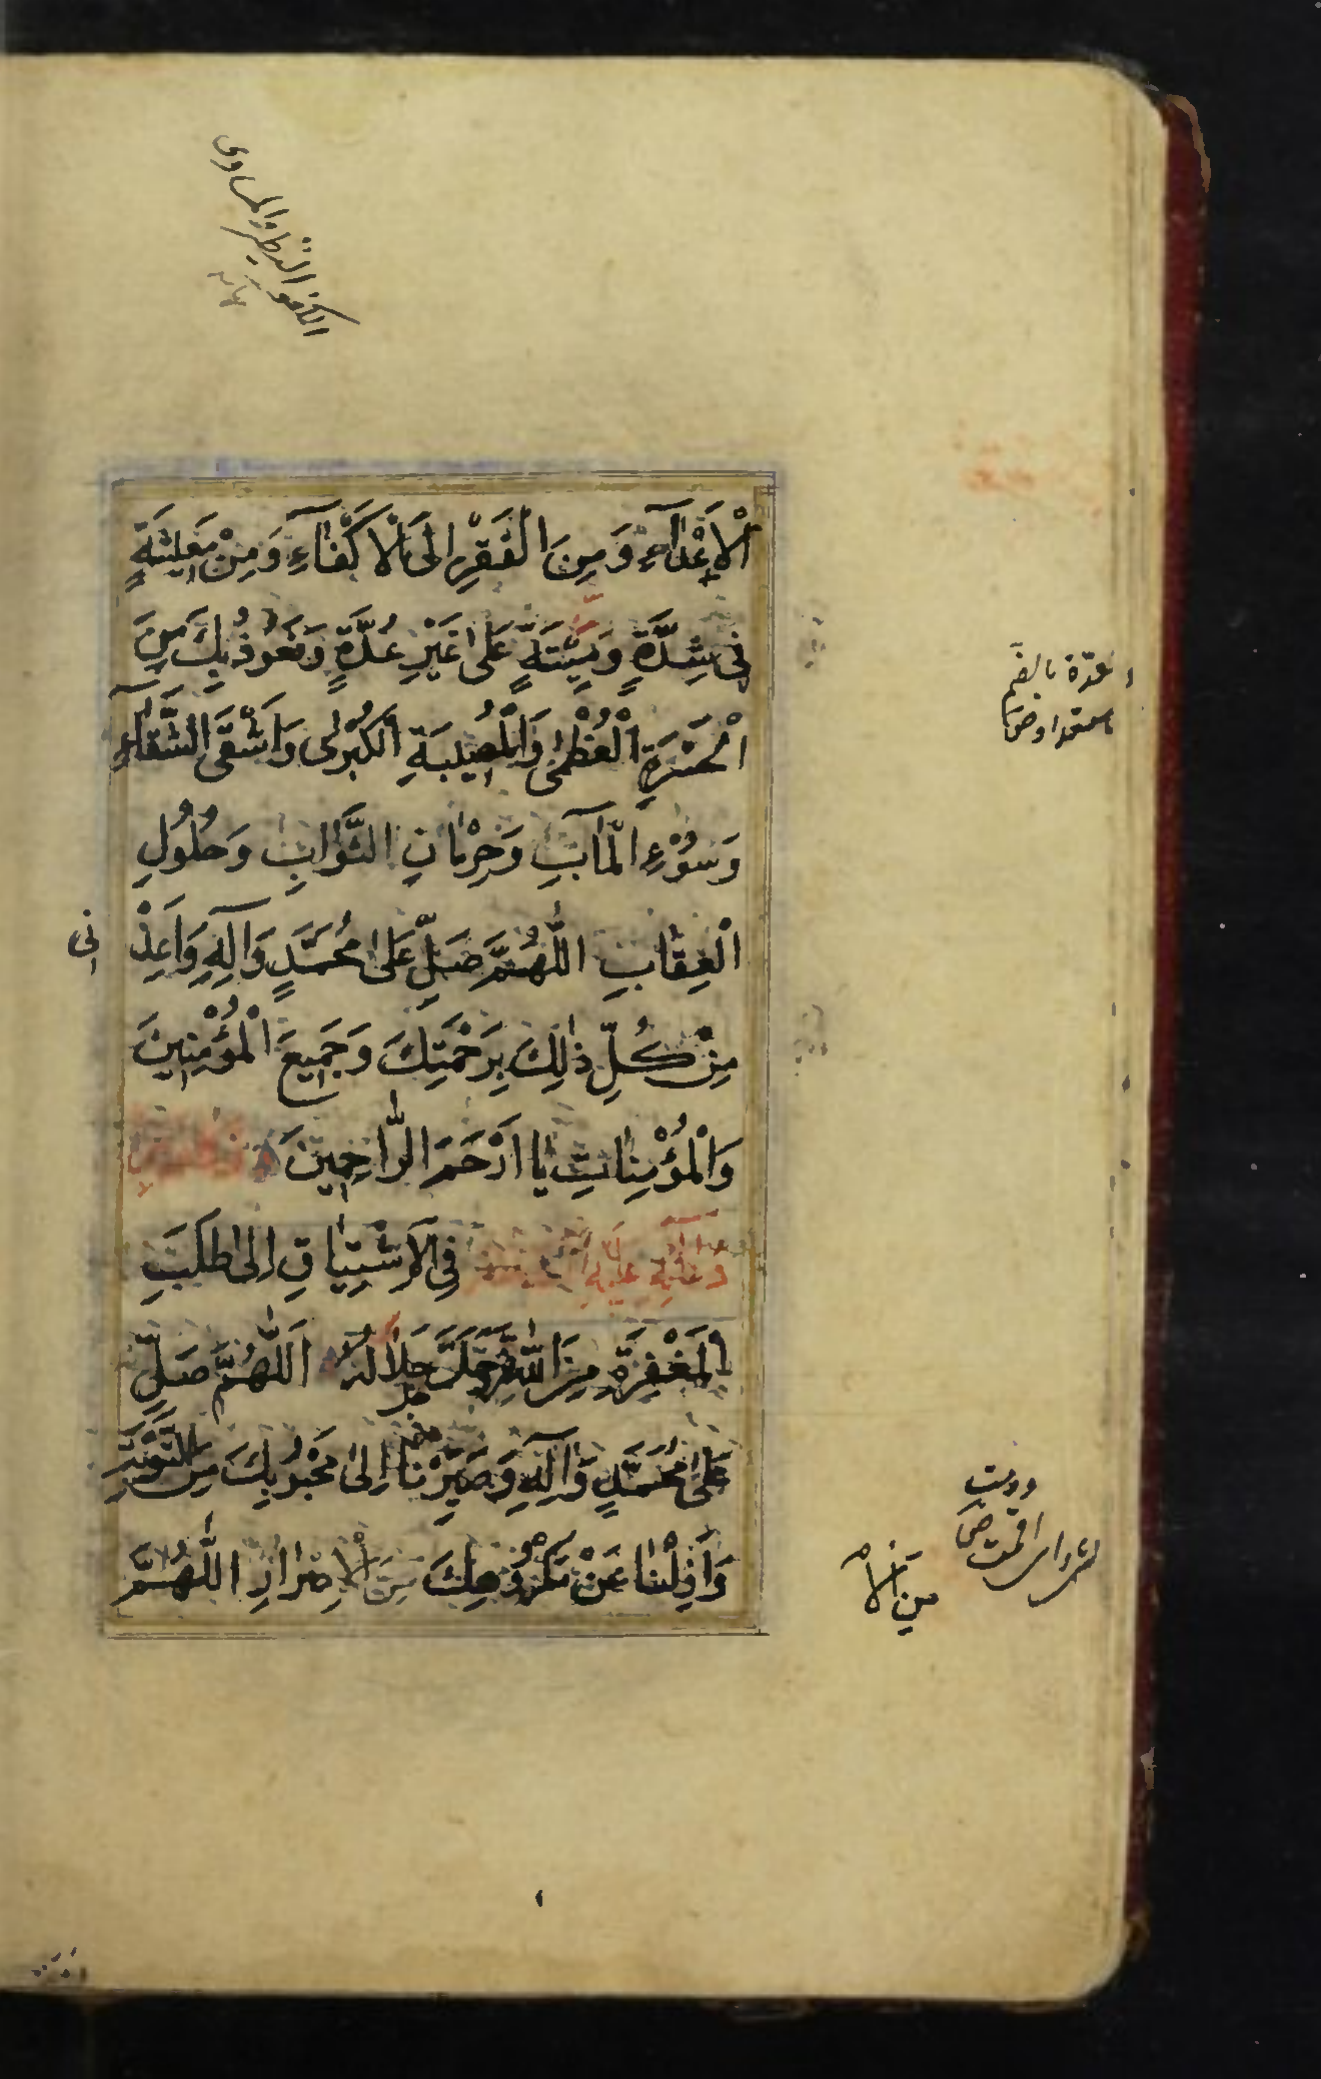 الكفو النظير والمساوى
نهاية
الْأَعْدَآءِ وَمِنَ الْفَقْرِ اِلَى الْاَكْفَآءِ وَمِنْ مَعِيشَةٍ
فِى شِدَّةٍ وَمِيْتَةٍ عَلىٰ غَيْرِ عُدَّةٍ وَنَعُوذُ بِكَ مِنَ
العدّة بالضم
الْحَسْرَةِ الْعُظْمٰى وَالْمُصِيبَةِ الْكُبْرىٰ وَاَشْقَى الشَّقَآءِ
وَسُوْءِ الْمَآبِ وَحِرْمَانِ الثَّوَابِ وَحُلُولِ
الْعِقَابِ اللّٰهُمَّ صَلِّ عَلىٰ مُحَمَّدٍ وَآلِهِ وَاَعِذْنِى
مِنْ كُلِّ ذٰلِكَ بِرَحْمَتِكَ وَجَمِيعَ الْمُؤْمِنِينَ
وَالْمُؤْمِنَاتِ يٰا اَرْحَمَ الرّٰاحِمِينَ وَكَانَ مِنْ
دُعَآئِهِ عَلَيْهِ السَّلَامُ فِى الْاِشْتِيٰاقِ اِلىٰ طَلَبِ
الْمَغْفِرَةِ مِنَ اللّٰهِ جَلَّ جَلَالُهُ اَللّٰهُمَّ صَلِّ
عَلىٰ مُحَمَّدٍ وَآلِهِ وَصَيِّرْنٰا اِلىٰ مَحْبُوبِكَ مِنَ التَّوْبَةِ
وَاَزِلْنٰا عَنْ مَكْرُوهِكَ مِنَ الْاِصْرَارِ اللّٰهُمَّ
مِنَ الْاِ